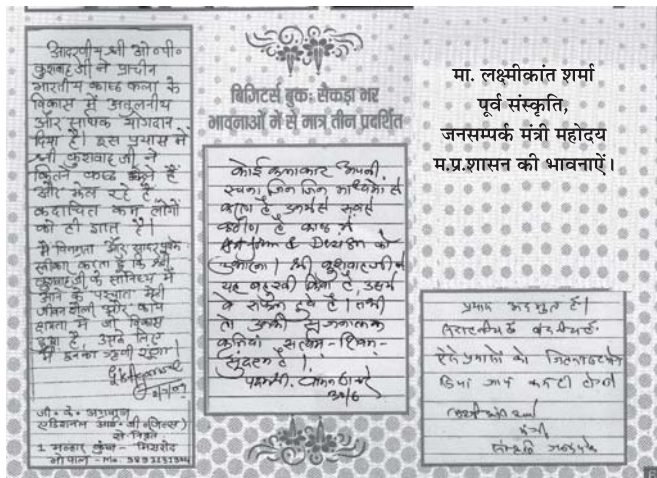 आदरणीय श्री ओ०पी०
कुशवाह जी ने प्राचीन
भारतीय काष्ठ कला के
विकास में अतुलनीय
और सार्थक योगदान
दिया है। इस प्रयास में
श्री कुशवाह जी ने
कितने कष्ट झेले हैं
और झेल रहे हैं
कदाचित कम लोगों
को ही ज्ञात है।
मैं विनम्रता और सादर पूर्वक
स्वीकार करता हूं कि श्री
कुशवाह जी के सानिध्य में
आने के पश्चात मेरी
जीवन शैली और कार्य
क्षमता में जो विकास
हुआ है, उसके लिए
मैं इनका ऋणी रहूंगा।
जी. के. अग्रवाल
एडिशनल आई. जी. (जिल्स)
से निवृत्त
भोपाल
विजिटर्स बुकः सैकड़ा भर
भावनाओं में से मात्र तीन प्रदर्शित
कोई कलाकार अपनी
रचना जिन जिन माध्यमों से
करता है उनमें सबसे
कठीण है काष्ठ में
को
श्री कुशवाह जी ने
यह बहुरवी किया है, उसमें
वे सफल हुवे है। तभी
तो उनकी सृजनात्मक
कृतियां सत्यम-शिवम-
सुंदरम है।
पद्मश्री.
मा. लक्ष्मीकांत शर्मा
पूर्व संस्कृति,
जनसम्पर्क मंत्री महोदय
म.प्र.शासन की भावनाऐं।
प्रयास अद्भुत है।
ऐसे प्रयासों को
किया जाय कम ही होगा
मंत्री